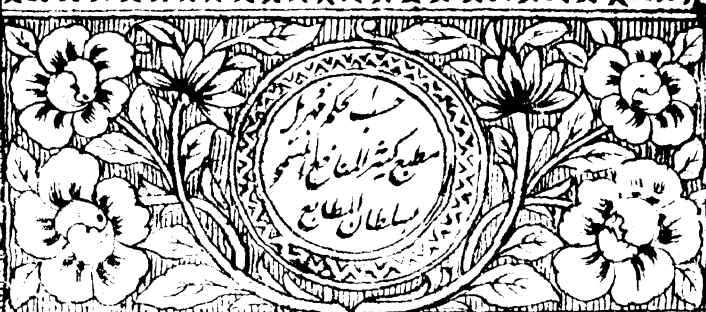 حسب الحکم فهرمل
مطبع کثیر المنافع المسمی
سلطان المطابع